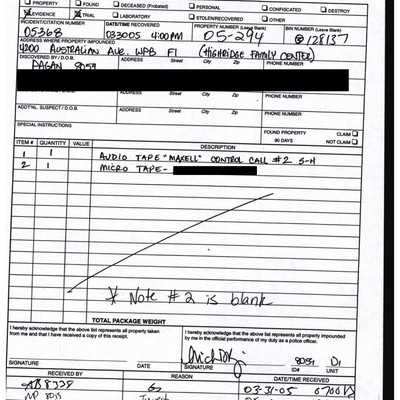 PROPERTY FOUND DECEASED (Probated) PERSONAL CONFISCATED DESTROY
EVIDENCE TRIAL LABORATORY STOLEN/RECOVERED OTHER
INCIDENT/CITATION NUMBER DATE/TIME RECOVERED PROPERTY NUMBER (Leave Blank) BIN NUMBER (Leave Blank)
05368 033005 4:00PM 05-294 @128137
ADDRESS WHERE PROPERTY IMPOUNDED
4200 AUSTRALIAN AVE. WPB Fl (HIGHRIDGE FAMILY CENTER)
DISCOVERED BY / D.O.B. ADDRESS Street City Zip PHONE NUMBER
PAGAN 8059
ADDRESS Street City Zip PHONE NUMBER
ADDT'NL. SUSPECT / D.O.B. ADDRESS Street City Zip PHONE NUMBER
SPECIAL INSTRUCTIONS FOUND PROPERTY CLAIM
90 DAYS NOT CLAIM
ITEM # QUANTITY VALUE DESCRIPTION
1 1 AUDIO TAPE "MAXELL" CONTROL CALL #2 S-H
2 1 MICRO TAPE-
* Note #2 is blank
TOTAL PACKAGE WEIGHT
I hereby acknowledge that the above list represents all property taken from me and that I have received a copy of this receipt.
I hereby acknowledge that the above list represents all property impounded by me in the official performance of my duty as a police officer.
8059 D1
SIGNATURE DATE SIGNATURE ID# UNIT
RECEIVED BY REASON DATE/TIME RECEIVED
8328 03-31-05 0700